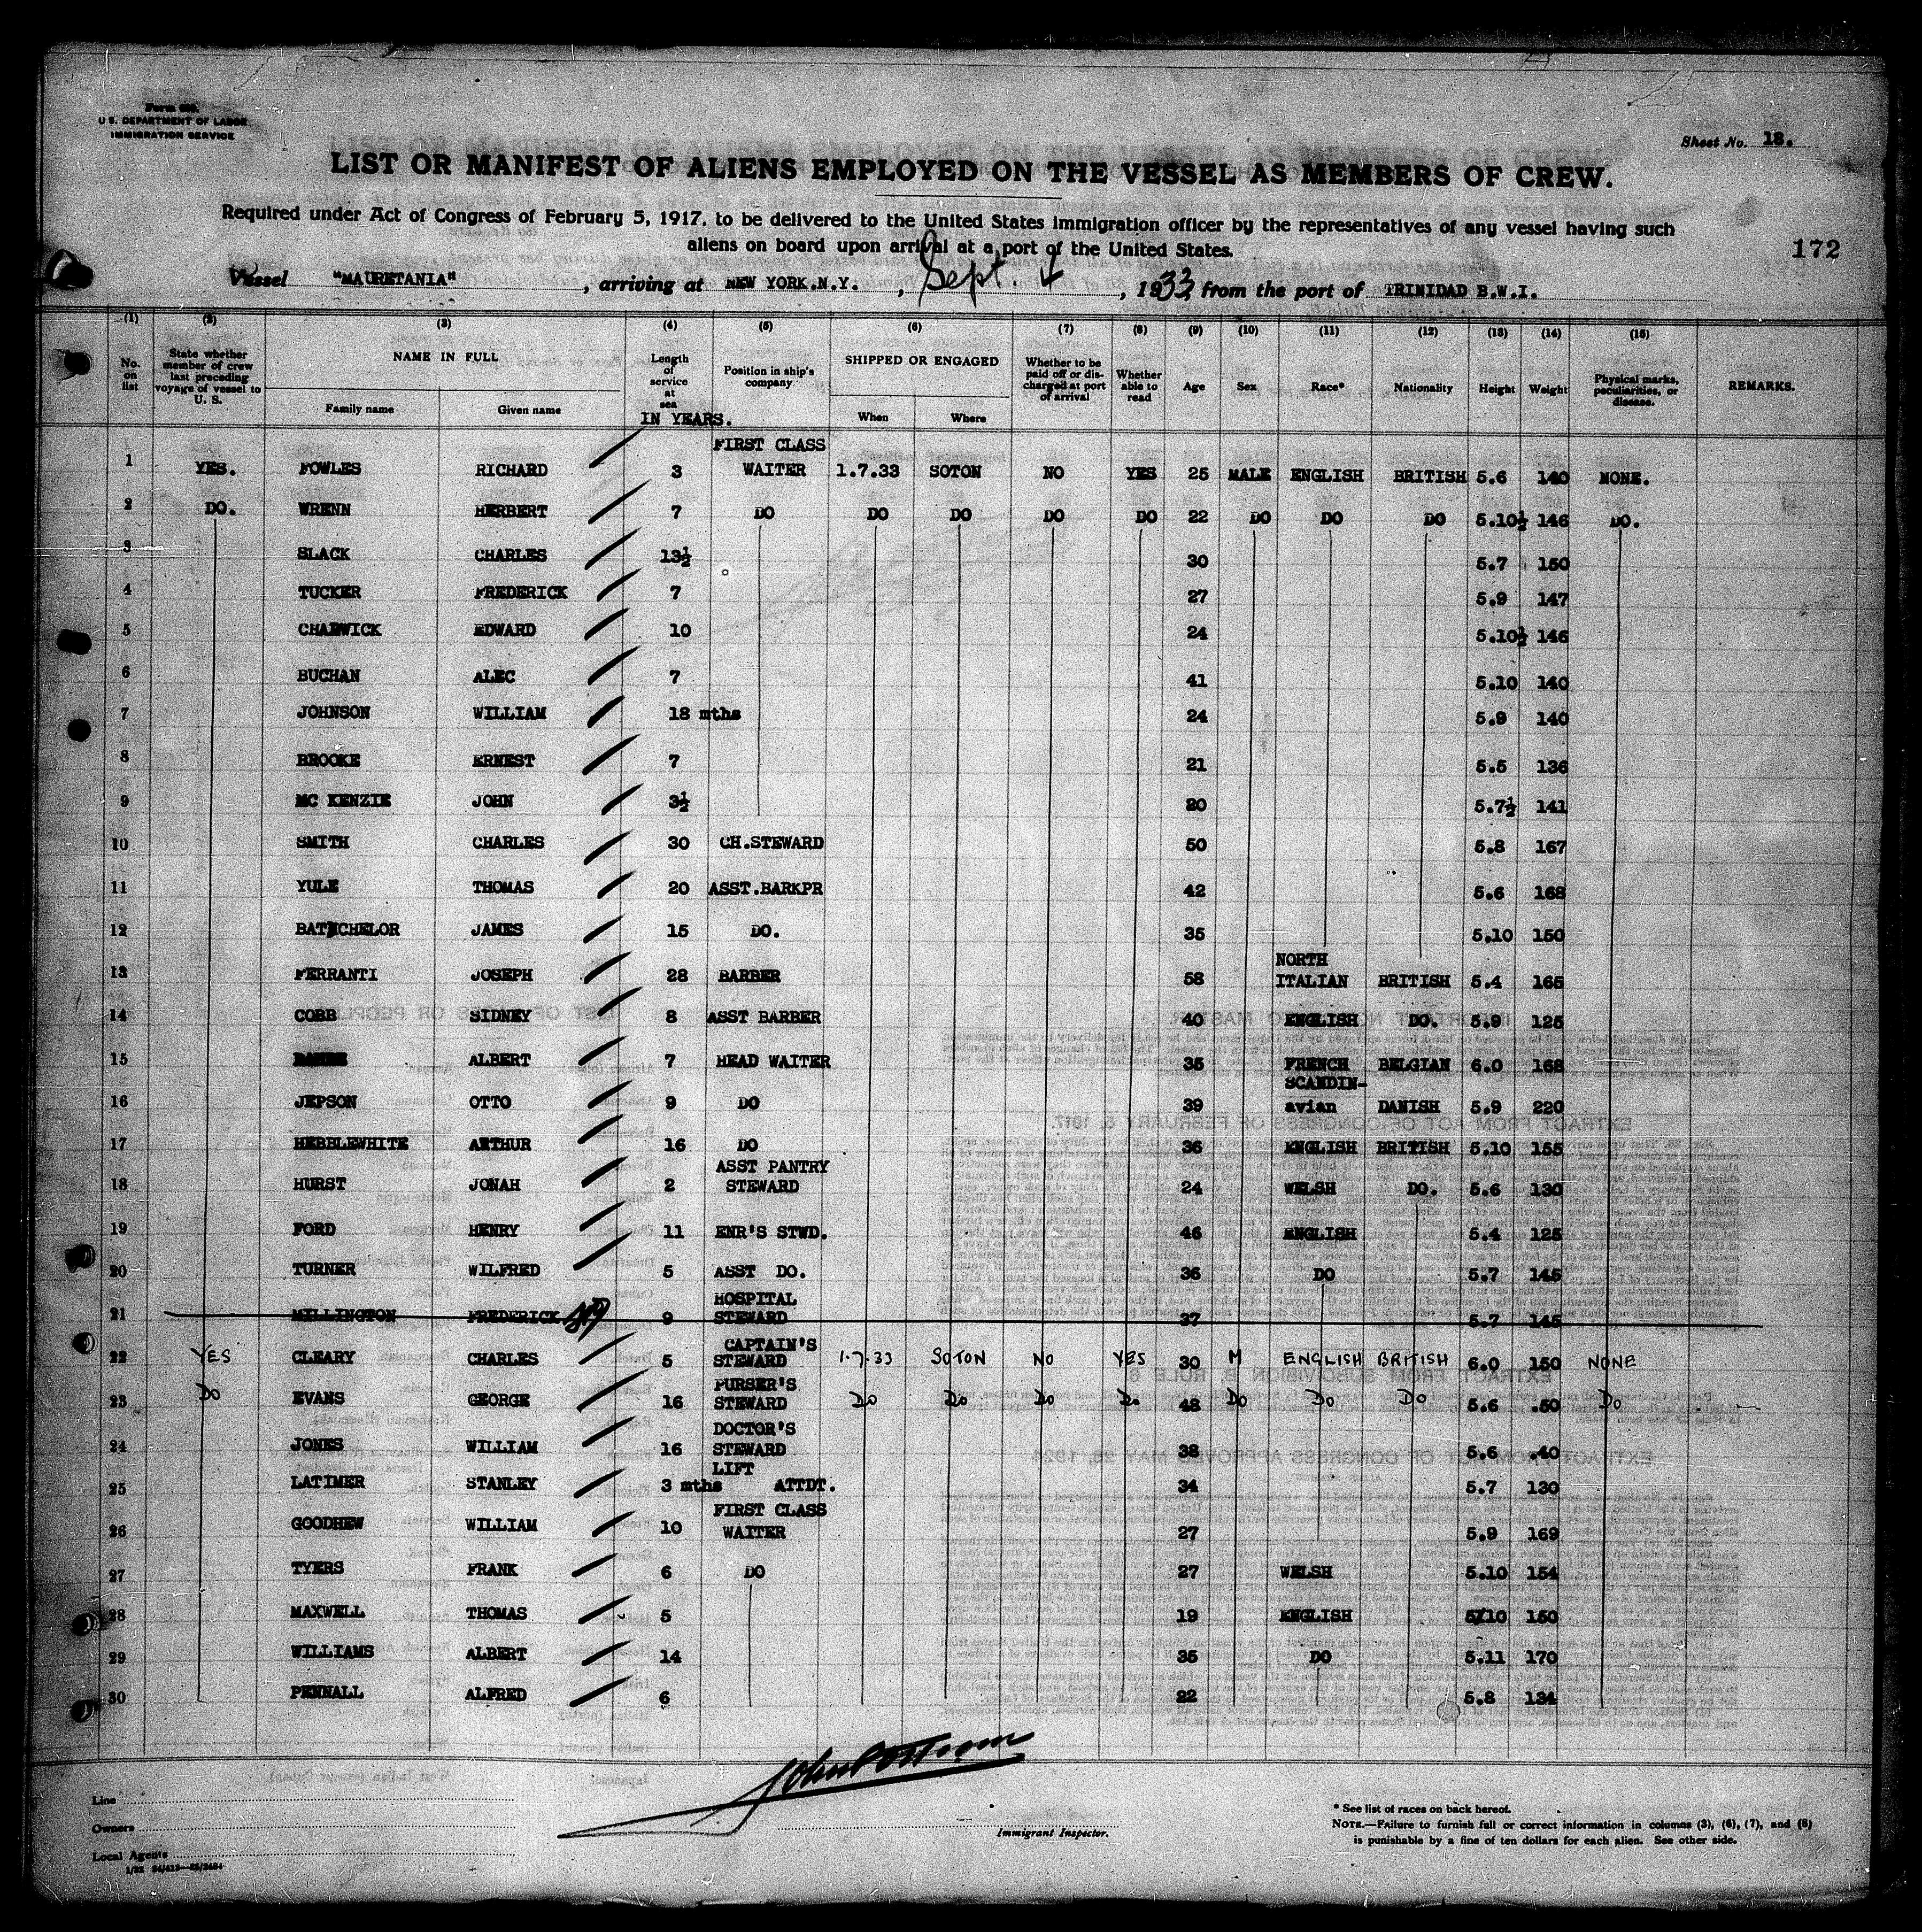 Form 680.
U.S. DEPARTMENT OF LABOR
IMMIGRATION SERVICE
Sheet No. 18.
LIST OR MANIFEST OF ALIENS EMPLOYED ON THE VESSEL AS MEMBERS OF CREW.
Required under Act of Congress of February 5, 1917, to be delivered to the United States immigration officer by the representatives of any vessel having such
aliens on board upon arrival at a port of the United States.
172
Vessel "MAURETANIA", arriving at NEW YORK.N.Y., Sept. 1933, from the port of TRINIDAD B.W.I.
(1) (2) (3) (4) (5) (6) (7) (8) (9) (10) (11) (12) (13) (14) (15)
No. on list State whether member of crew last preceding voyage of vessel to U. S. NAME IN FULL Family name Given name Length of service at sea IN YEARS. Position in ship's company SHIPPED OR ENGAGED When Where Whether to be paid off or discharged at port of arrival Whether able to read Age Sex Race* Nationality Height Weight Physical marks, peculiarities, or disease. REMARKS.
FIRST CLASS
1 YES. FOWLES RICHARD 3 WAITER 1.7.33 SOTON NO YES 25 MALE ENGLISH BRITISH 5.6 140 NONE.
2 DO. WRENN HERBERT 7 DO DO DO DO DO 22 DO DO DO 5.10½ 146 DO.
3 SLACK CHARLES 13½ 30 5.7 150
4 TUCKER FREDERICK 7 27 5.9 147
5 CHADWICK EDWARD 10 24 5.10½ 146
6 BUCHAN ALEC 7 41 5.10 140
7 JOHNSON WILLIAM 18 mths 24 5.9 140
8 BROOKE ERNEST 7 21 5.5 136
9 MC KENZIE JOHN 3½ 20 5.7½ 141
10 SMITH CHARLES 30 CH.STEWARD 50 5.8 167
11 YULE THOMAS 20 ASST.BARKPR 42 5.6 168
12 BATCHELOR JAMES 15 DO. 35 5.10 150
NORTH
13 FERRANTI JOSEPH 28 BARBER 58 ITALIAN BRITISH 5.4 165
14 COBB SIDNEY 8 ASST BARBER 40 ENGLISH DO. 5.9 125
15 ALBERT 7 HEAD WAITER 35 FRENCH BELGIAN 6.0 168
SCANDIN-
16 JEPSON OTTO 9 DO 39 avian DANISH 5.9 220
17 HEBBLEWHITE ARTHUR 16 DO 36 ENGLISH BRITISH 5.10 155
ASST PANTRY
18 HURST JONAH 2 STEWARD 24 WELSH DO. 5.6 130
19 FORD HENRY 11 ENR'S STWD. 46 ENGLISH 5.4 125
20 TURNER WILFRED 5 ASST DO. 36 DO 5.7 145
HOSPITAL
21 MILLINGTON FREDERICK 9 STEWARD 37 5.7 145
CAPTAIN'S
22 YES CLEARY CHARLES 5 STEWARD 1.7.33 SOTON NO YES 30 M ENGLISH BRITISH 6.0 150 NONE
PURSER'S
23 Do EVANS GEORGE 16 STEWARD Do Do Do Do 48 Do Do Do 5.6 .50 Do
DOCTOR'S
24 JONES WILLIAM 16 STEWARD 38 5.6 .40
LIFT
25 LATIMER STANLEY 3 mths ATTDT. 34 5.7 130
FIRST CLASS
26 GOODHEW WILLIAM 10 WAITER 27 5.9 169
27 TYERS FRANK 6 DO 27 WELSH 5.10 154
28 MAXWELL THOMAS 5 19 ENGLISH 5/10 150
29 WILLIAMS ALBERT 14 35 DO 5.11 170
30 PENNALL ALFRED 6 22 5.8 134
Line
Owners
Local Agents
Immigrant Inspector.
* See list of races on back hereof.
NOTE.—Failure to furnish full or correct information in columns (3), (6), (7), and (8)
is punishable by a fine of ten dollars for each alien. See other side.